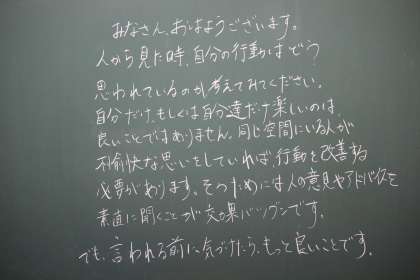 みなさん、おはようございます。
人から見た時、自分の行動はどう
思われているのか考えてみてください。
自分だけ、もしくは自分達だけ楽しいのは、
良いことではありません。同じ空間にいる人が
不愉快な思いをしていれば行動を改善する
必要があります。そのためには人の意見やアドバイスを
素直に聞くことが効果バツグンです。
でも、言われる前に気づけたら、もっと良いことです。